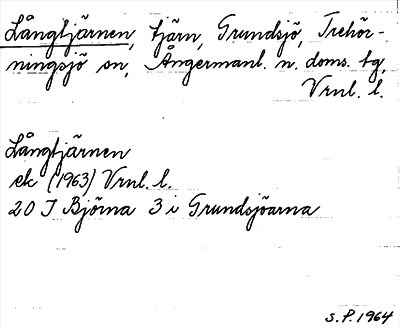 Långtjärnen, tjärn, Grundsjö, Trehör-
ningsjö sn, Ångermanl. n. doms. tg,
Vrnl. l.
Långtjärnen
ek (1963) Vrnl. l.
20 J Björna 3 i Grundsjöarna
S.P. 1964